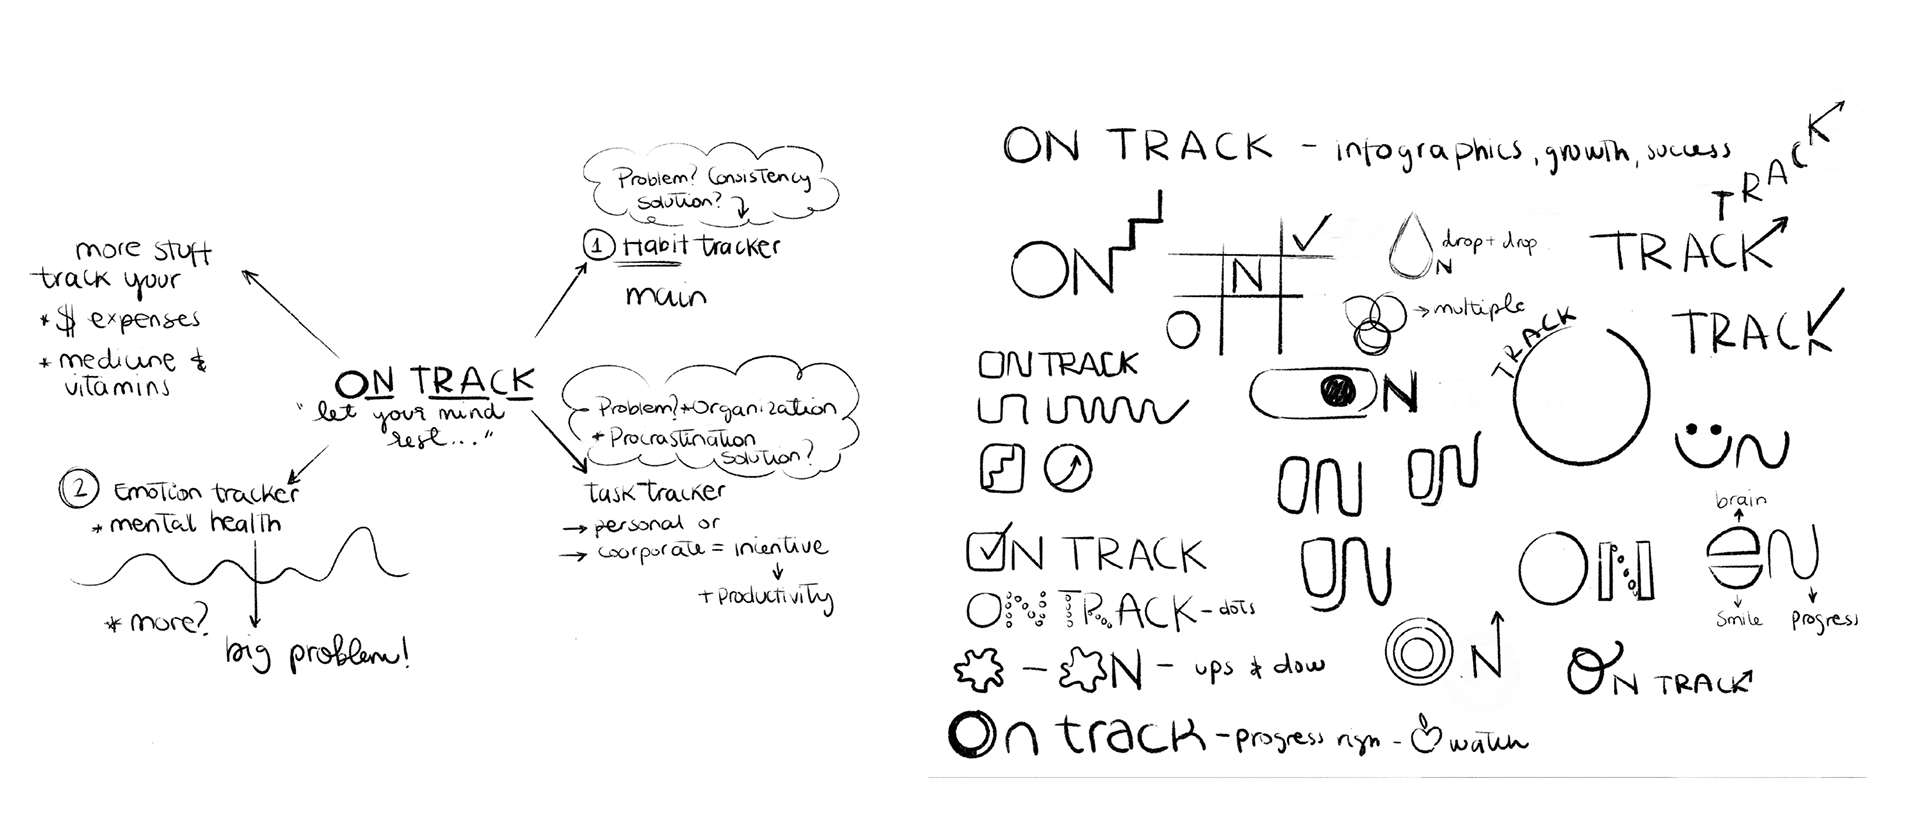 Problem? Consistency
solution?
1 Habit tracker
main
more stuff
track your
* $ expenses
* medicine &
vitamins
ON TRACK
"let your mind
rest..."
Problem? * Organization
* Procrastination
solution?
task tracker
→ personal or
→ coorporate = incentive
+ productivity
2 Emotion tracker
* mental health
* more?
big problem!
ON TRACK - infographics, growth, success
TRACK
ON
N
O
drop + drop
N
→ multiple
TRACK
TRACK
TRACK
ON TRACK
N
ON
ON
ON
ON
brain
ON
ON
smile
progress
ON TRACK
ON TRACK - dots
- ON - ups & dow
ON
ON TRACK
On track - progress rign - watch